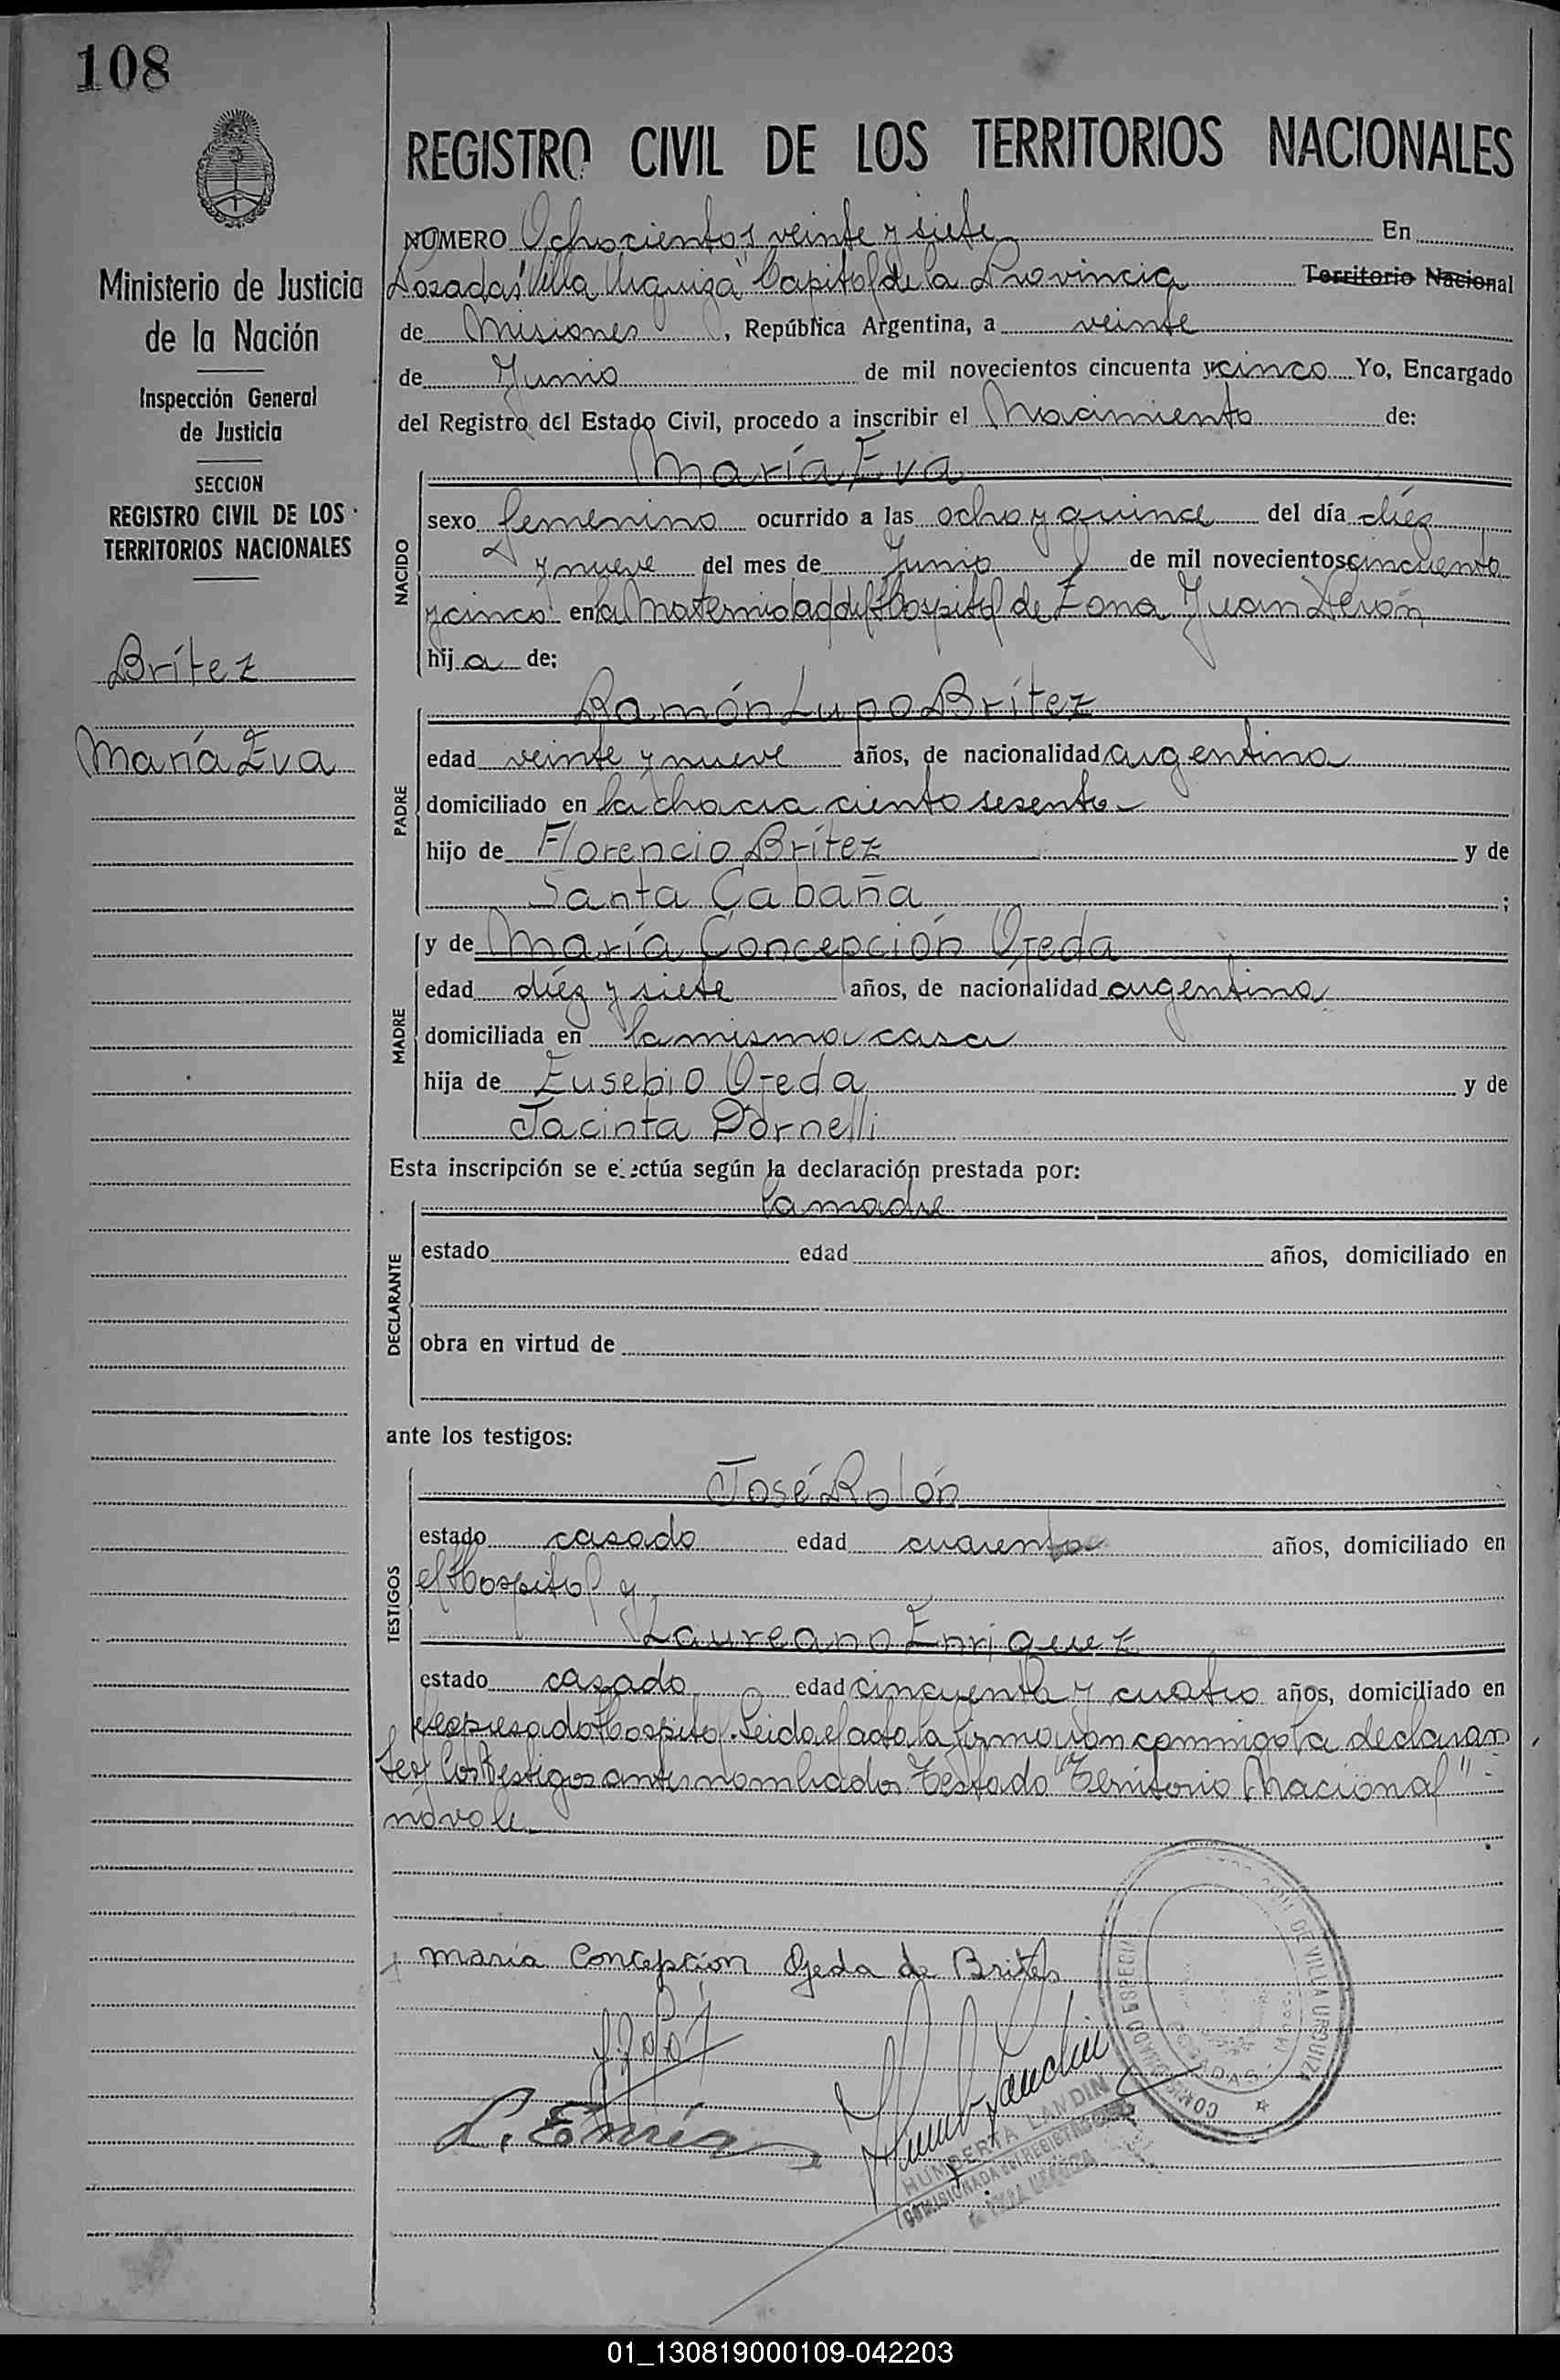 108
REGISTRO CIVIL DE LOS TERRITORIOS NACIONALES
Ministerio de Justicia
de la Nación
Inspección General
de Justicia
SECCION
REGISTRO CIVIL DE LOS
TERRITORIOS NACIONALES
Brítez
María Eva
NUMERO Ochocientos veinte y siete En
Posadas "Villa Urquiza" Capital de la Provincia Territorio Nacional
de Misiones, República Argentina, a veinte
de Junio de mil novecientos cincuenta y cinco Yo, Encargado
del Registro del Estado Civil, procedo a inscribir el Nacimiento de:
NACIDO
María Eva
sexo femenino ocurrido a las ocho y quince del día diéz
y nueve del mes de Junio de mil novecientos cincuenta
y cinco en la Maternidad del Hospital de Zona Juan Perón
hija de:
PADRE
Ramón Lupo Brítez
edad veinte y nueve años, de nacionalidad argentina
domiciliado en la chacra ciento sesenta
hijo de Florencio Brítez y de
Santa Cabaña ;
MADRE
y de María Concepción Ojeda
edad diéz y siete años, de nacionalidad argentina
domiciliada en la misma casa
hija de Eusebio Ojeda y de
Jacinta Dornelli
Esta inscripción se efectúa según la declaración prestada por:
DECLARANTE
la madre
estado edad años, domiciliado en
obra en virtud de
ante los testigos:
TESTIGOS
José Rolón
estado casado edad cuarenta años, domiciliado en
el Hospital y
Laureano Enriquez
estado casado edad cincuenta y cuatro años, domiciliado en
el expresado Hospital. Leida el acta la firmaron conmigo la declaran
te y los testigos antes nombrados. Testado "Territorio Nacional" -
no vale
María Concepción Ojeda de Brites
L. Enriq
HUMBERTA LANDIN
COMISIONADA DE VILLA URQUIZA
POSADAS
01_130819000109-042203